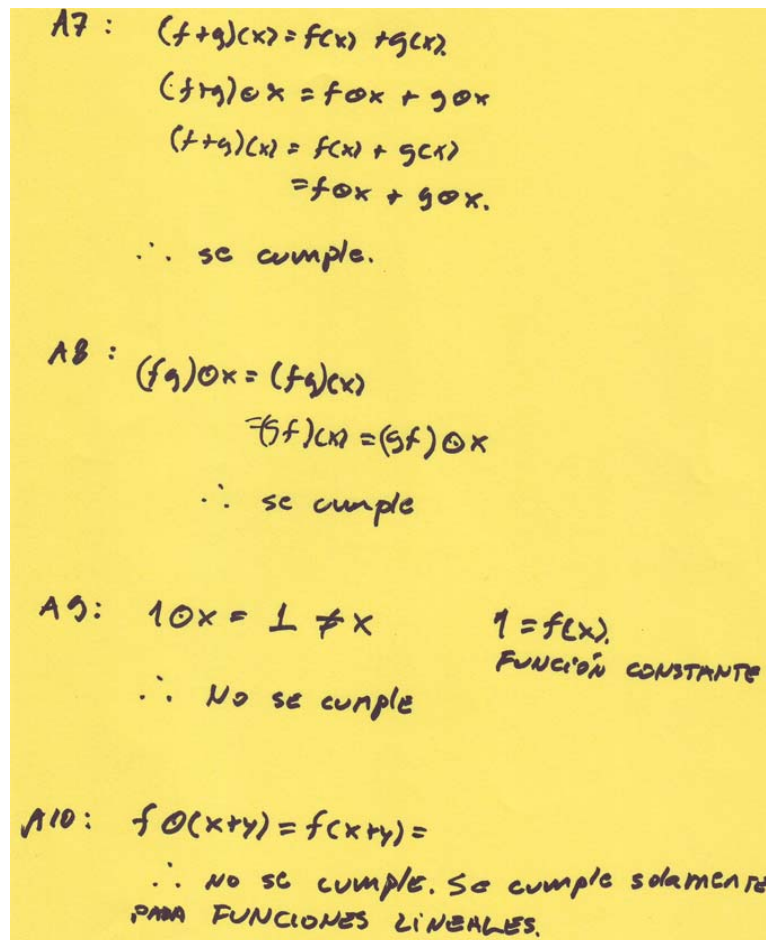 A7: (f+g)(x) = f(x) + g(x).
(f+g)⊙x = f⊙x + g⊙x
(f+g)(x) = f(x) + g(x)
= f⊙x + g⊙x.
∴ se cumple.
A8: (fg)⊙x = (fg)(x)
=(gf)(x) = (gf)⊙x
∴ se cumple
A9: 1⊙x = 1 ≠ x 1 = f(x).
FUNCIÓN CONSTANTE
∴ No se cumple
A10: f⊙(x+y) = f(x+y) =
∴ No se cumple. Se cumple solamente
PARA FUNCIONES LINEALES.